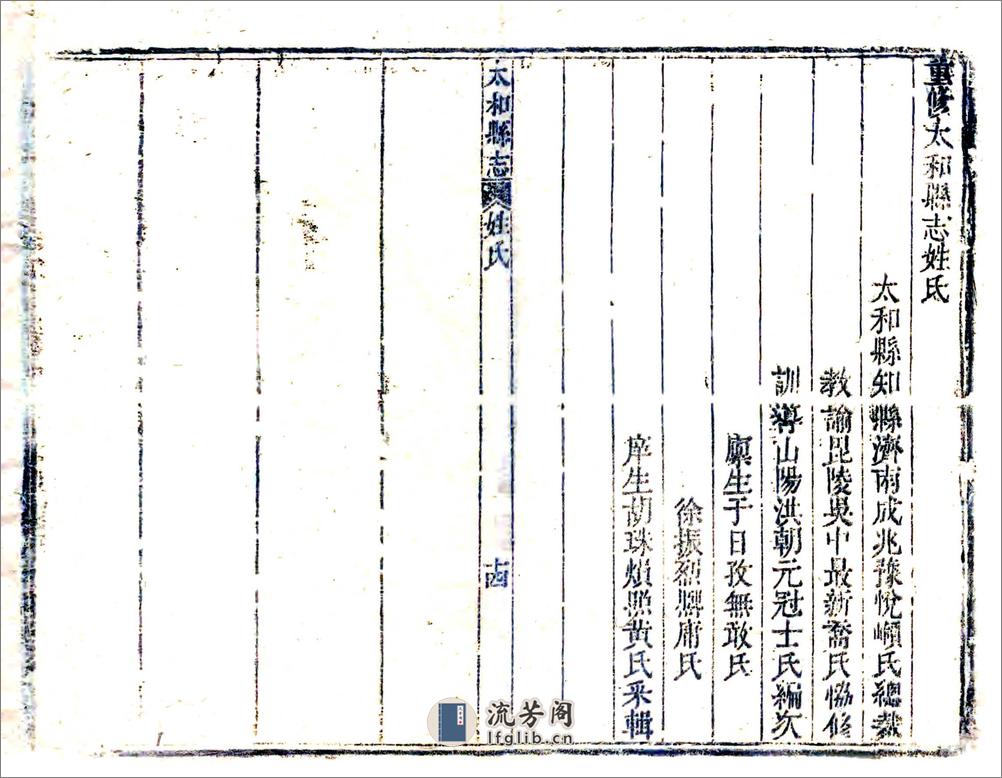 重修太和縣志姓氏
太和縣知縣濟南成兆豫悅嶼氏總裁
教諭毘陵吳中最新喬氏協修
訓導山陽洪朝元冠士氏編次
廩生于日孜無敢氏
徐振烈驛庸氏
庠生胡珠煩照黃氏采輯
太和縣志
姓氏
流芳阁
lfglib.cn